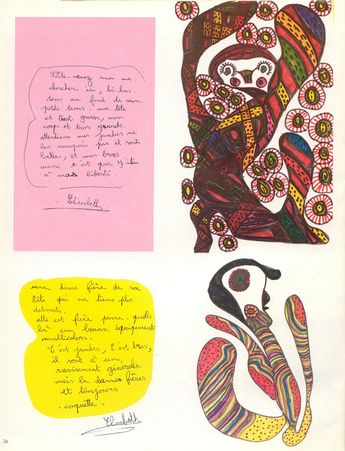 venez moi me
chercher ici, là bas
tous au fond de mon
petit tiroir. ma tête
et tout grosse, mon
corps et trop grands
attentions mes jambes ne
les coupais pas et sont
belles, et mes bras
aussi c'est que j'
à ma liberté.
Elisabeth
une dame fière de sa
tête qui ne tiens plus
debouts.
elle est fière parce quelle
là un beaux équipement
multicolors.
C'est jambes, C'est bras,
il sont d'un,
ravisement générale
mais la dame fières
et toujours
coquette.
Elisabeth
26